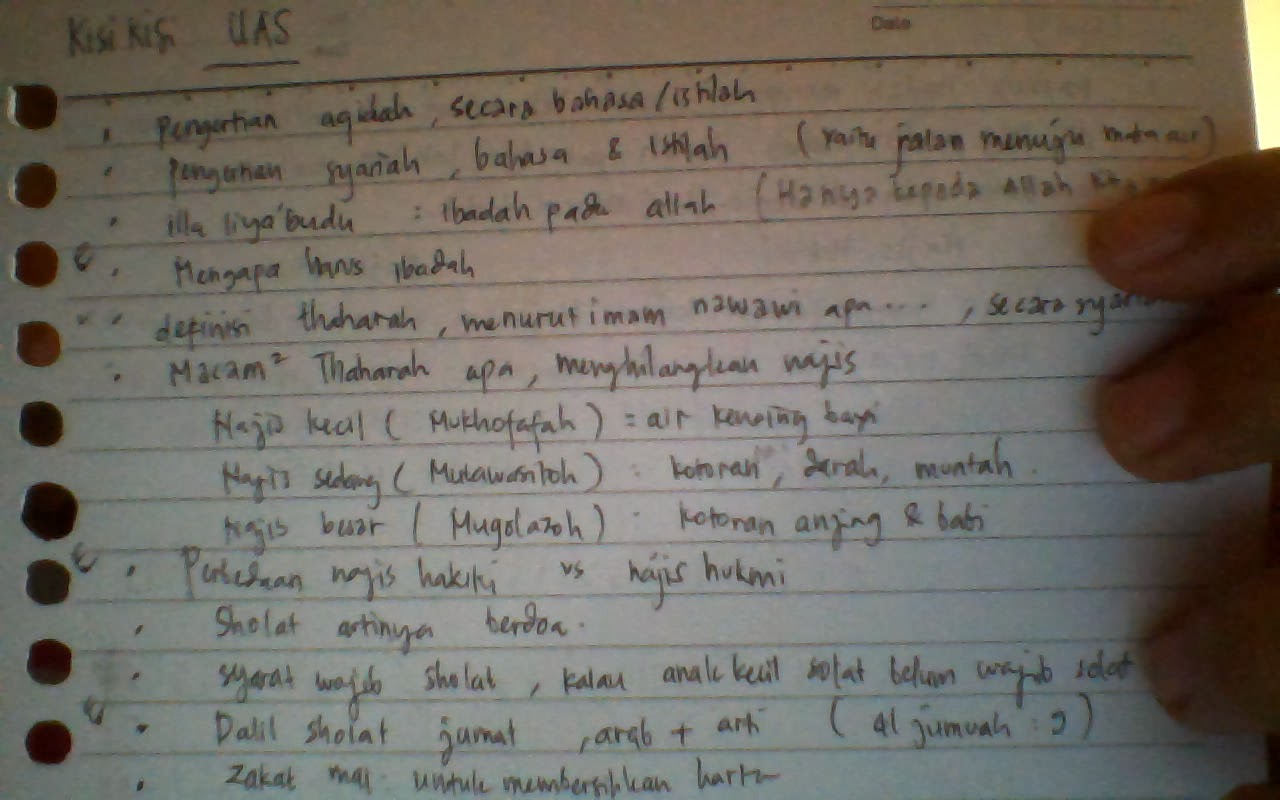 Kisi kisi UAS
Date
• Pengertian aqidah, secara bahasa/istilah
• Pengertian syariah, bahasa & istilah (yaitu jalan menuju mata air)
• illa liya'budu : Ibadah pada allah (Hanya kepada Allah
• Mengapa harus ibadah
definisi thaharah, menurut imam nawawi apa...., secara
• Macam² Thaharah apa, menghilangkan najis
Najis kecil (Mukhofafah) = air kencing bayi
Najis sedang (Mutawasitoh) : kotoran, darah, muntah.
Najis besar (Mugolazoh) : kotoran anjing & babi
• Perbedaan najis hakiki vs najis hukmi
• Sholat artinya berdoa.
• syarat wajib sholat, kalau anak kecil solat belum wajib solat
• Dalil sholat jumat, arab + arti (Al jumuah : 9)
• Zakat mal untuk membersihkan harta